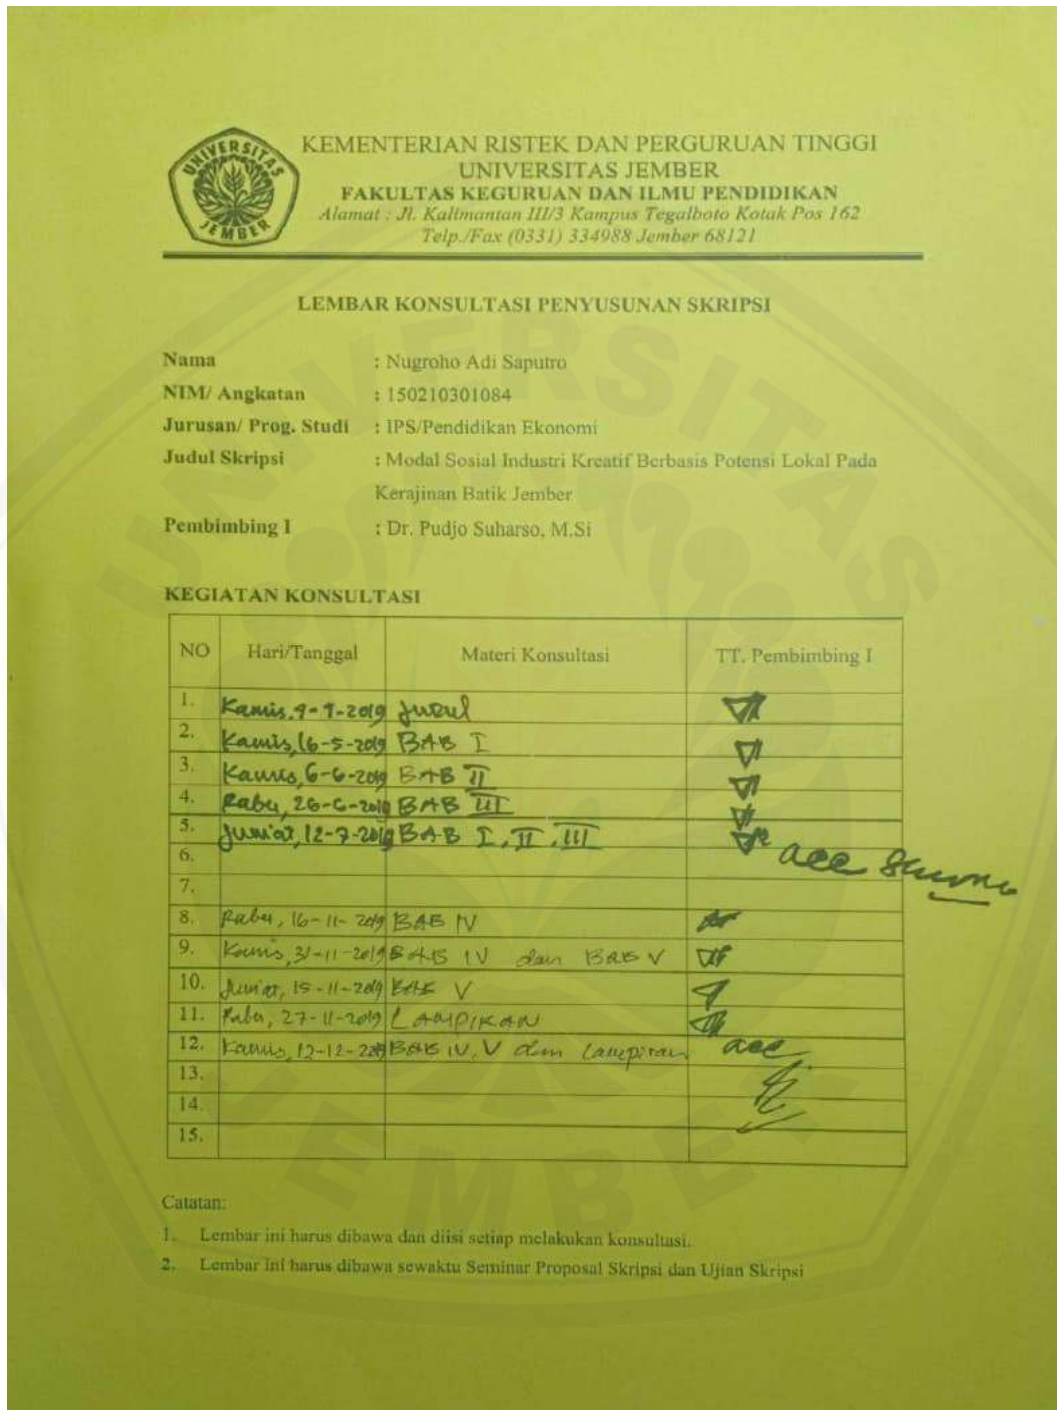 UNIVERSITAS
JEMBER
KEMENTERIAN RISTEK DAN PERGURUAN TINGGI
UNIVERSITAS JEMBER
FAKULTAS KEGURUAN DAN ILMU PENDIDIKAN
Alamat : Jl. Kalimantan III/3 Kampus Tegalboto Kotak Pos 162
Telp./Fax (0331) 334988 Jember 68121
LEMBAR KONSULTASI PENYUSUNAN SKRIPSI
Nama : Nugroho Adi Saputro
NIM/ Angkatan : 150210301084
Jurusan/ Prog. Studi : IPS/Pendidikan Ekonomi
Judul Skripsi : Modal Sosial Industri Kreatif Berbasis Potensi Lokal Pada
Kerajinan Batik Jember
Pembimbing I : Dr. Pudjo Suharso, M.Si
KEGIATAN KONSULTASI
NO Hari/Tanggal Materi Konsultasi TT. Pembimbing I
1. Kamis, Judul
2. Kamis, 16-5-2019 BAB I
3. Kamis, 6-6-2019 BAB II
4. Rabu, 26-6-2019 BAB III
5. Jum'at, 12-7-2019 BAB I, II, III
acc
6.
7.
8. Rabu, 16-11-2019 BAB IV
9. Kamis, 31-11-2019 BAB IV dan BAB V
10. Jum'at, 15-11-2019 BAB V
11. Rabu, 27-11-2019 LAMPIRAN
12. Kamis, 12-12-2019 BAB IV, V dan Lampiran acc
13.
14.
15.
Catatan:
1. Lembar ini harus dibawa dan diisi setiap melakukan konsultasi.
2. Lembar ini harus dibawa sewaktu Seminar Proposal Skripsi dan Ujian Skripsi
UNIVERSITAS
JEMBER